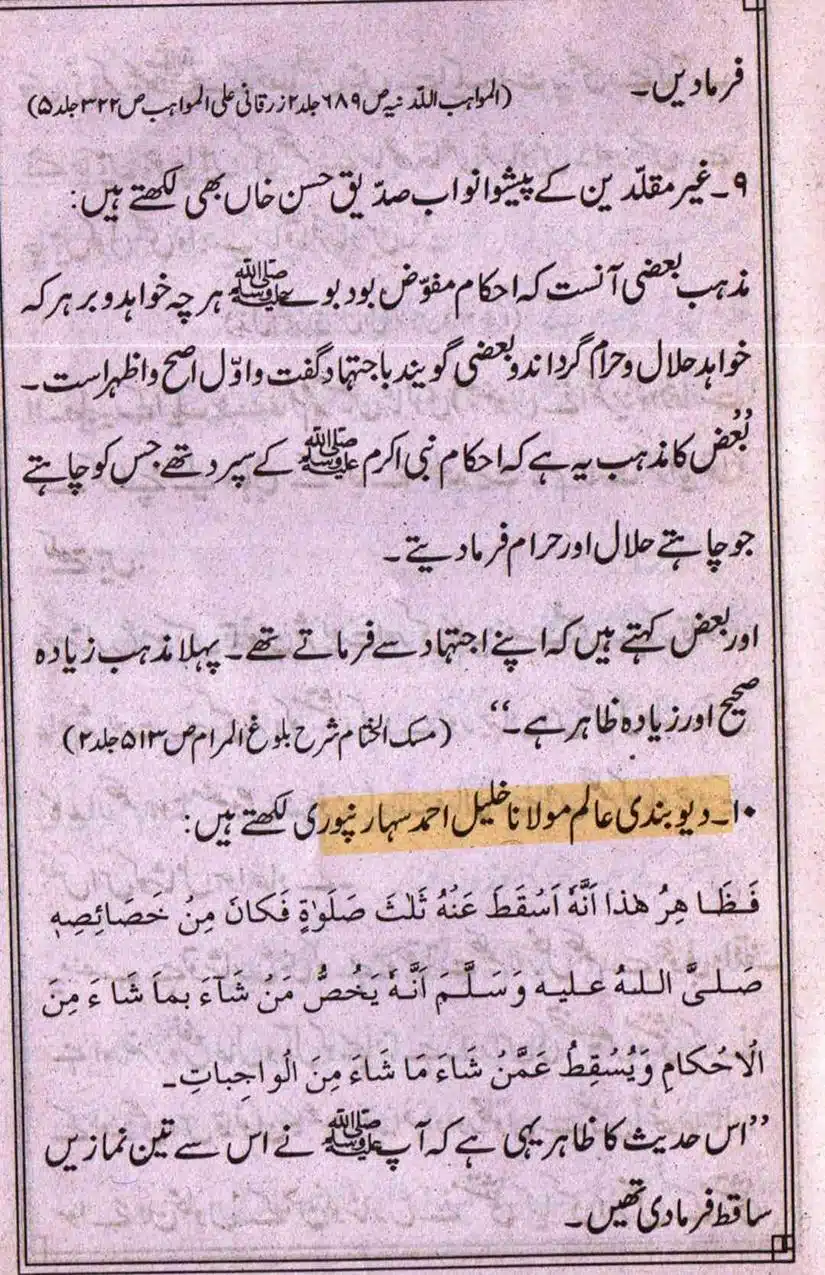 فرمادیں۔
(المواہب اللدنیہ ص ۶۸۹ جلد ۲ زرقانی علی المواہب ص ۳۲۲ جلد ۵)
۹۔ غیر مقلّدین کے پیشوا نواب صدّیق حسن خاں بھی لکھتے ہیں:
مذہب بعضی آنست کہ احکام مفوّض بود بوے ﷺ ہر چہ خواہد و بر ہر کہ
خواہد حلال و حرام گرداند و بعضی گویند باجتہاد گفت و اوّل اصح و اظہر است۔
بُعُض کا مذہب یہ ہے کہ احکام نبی اکرم ﷺ کے سپرد تھے جس کو چاہتے
جو چاہتے حلال اور حرام فرما دیتے۔
اور بعض کہتے ہیں کہ اپنے اجتہاد سے فرماتے تھے۔ پہلا مذہب زیادہ
صحیح اور زیادہ ظاہر ہے۔“ (مسک الختام شرح بلوغ المرام ص ۵۱۳ جلد ۲)
۱۰۔ دیوبندی عالم مولانا خلیل احمد سہارنپوری لکھتے ہیں:
فَظَاهِرُ هٰذا اَنَّهٗ اَسْقَطَ عَنْهُ ثَلٰثَ صَلَوٰةٍ فَكَانَ مِنْ خَصَائِصِهٖ
صَلیَّ اللهُ علیه وَسَلَّمَ اَنَّهٗ یَخُصُّ مَنْ شَآءَ بماَ شَاءَ مِنَ
الْاحْکامِ وَیُسْقِطُ عَمَّنْ شَاءَ مَا شَاءَ مِنَ الْواجِباتِ۔
”اس حدیث کا ظاہر یہی ہے کہ آپ ﷺ نے اس سے تین نمازیں
ساقط فرما دی تھیں۔